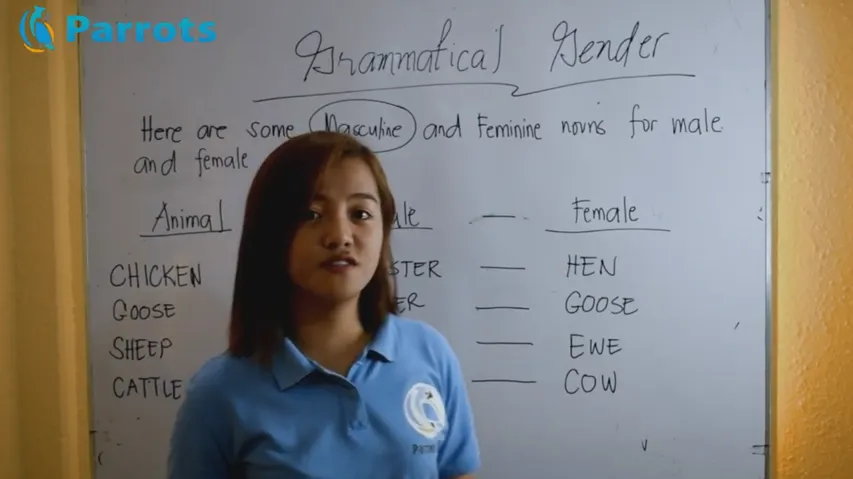 Parrots
Grammatical Gender
Here are some Masculine and Feminine nouns for male
and female
Animal — Female
CHICKEN — HEN
GOOSE — GOOSE
SHEEP — EWE
CATTLE — COW